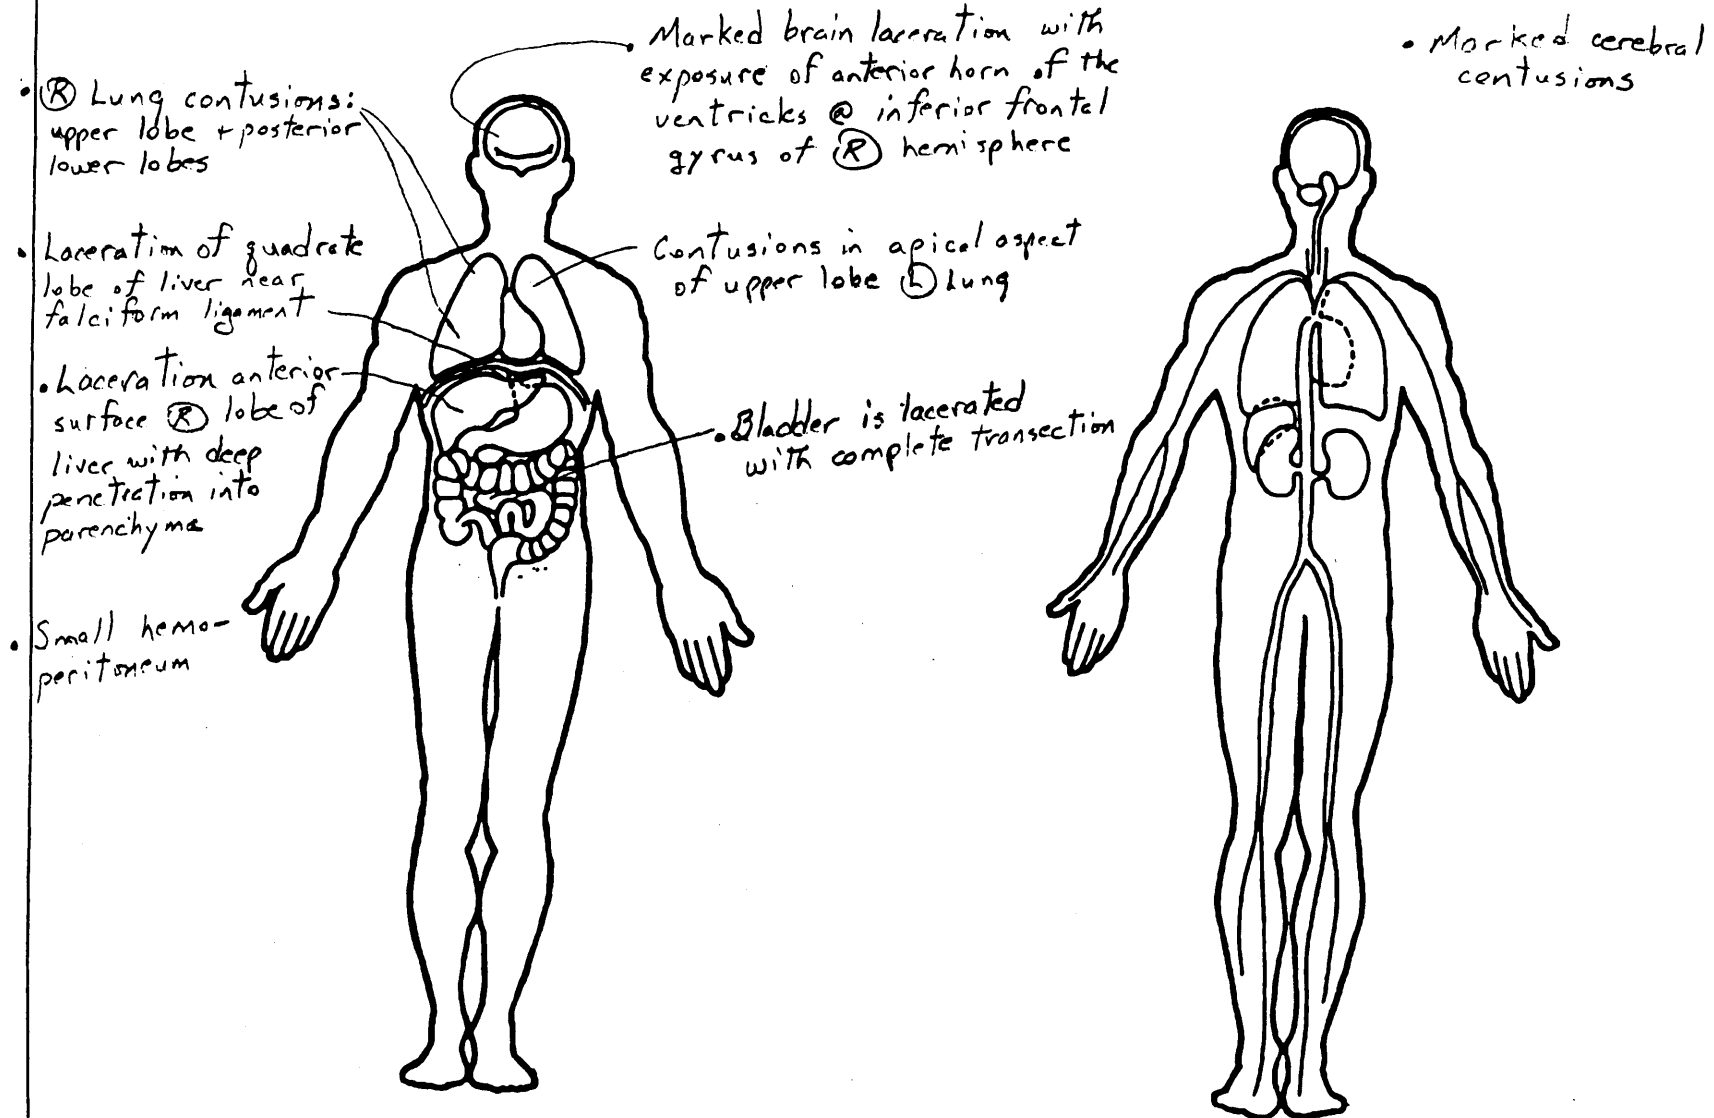 • Ⓡ Lung contusions:
upper lobe + posterior
lower lobes
• Laceration of quadrate
lobe of liver near
falciform ligament
• Laceration anterior
surface Ⓡ lobe of
liver with deep
penetration into
parenchyma
• Small hemo-
peritoneum
• Marked brain laceration with
exposure of anterior horn of the
ventricles @ inferior frontal
gyrus of Ⓡ hemisphere
Contusions in apical aspect
of upper lobe Ⓛ Lung
• Bladder is lacerated
with complete transection
• Marked cerebral
contusions